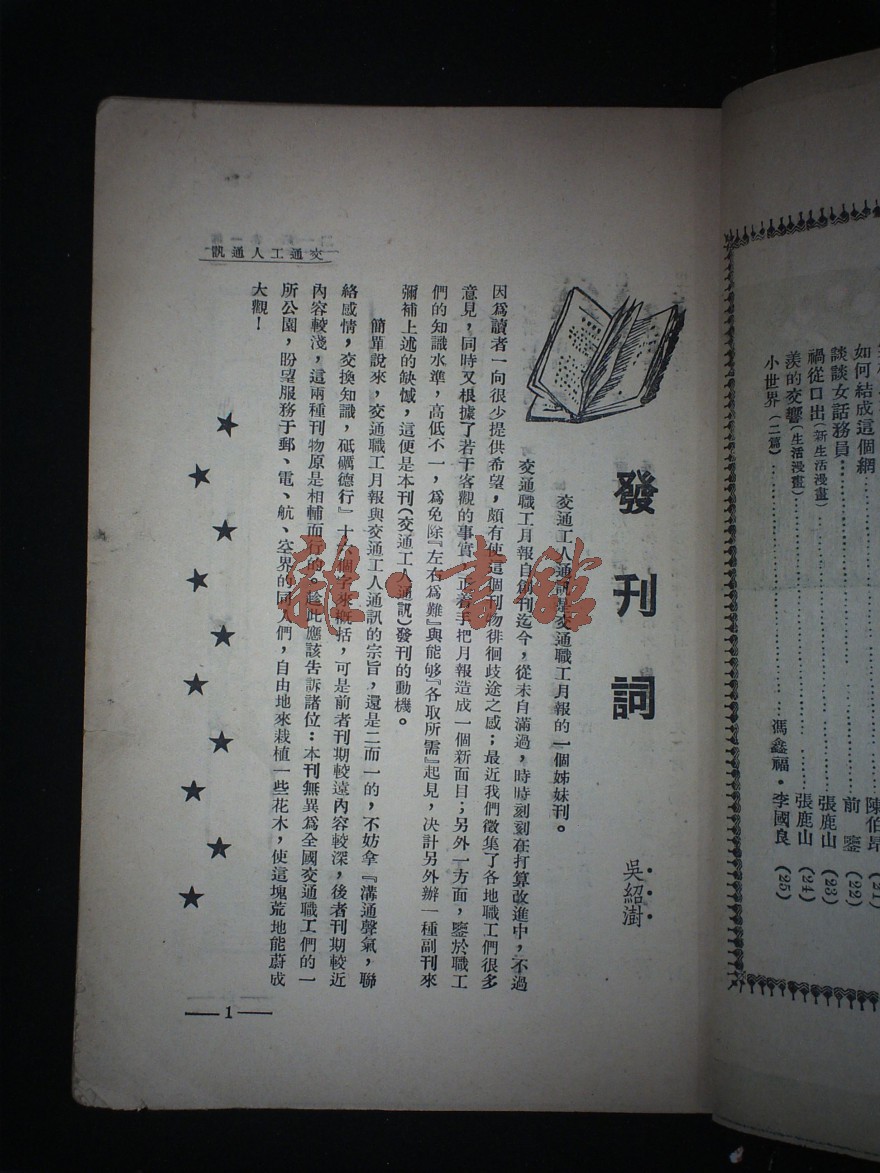 發刊詞
吳紹澍
交通工人通訊是交通職工月報的一個姊妹刊。
交通職工月報自創刊迄今，從未自滿過，時時刻刻在打算改進中，不過
因爲讀者一向很少提供希望，頗有使這個刊物徘徊歧途之感；最近我們徵集了各地職工們很多
意見，同時又根據了若干客觀的事實，正着手把月報造成一個新面目；另外一方面，鑒於職工
們的知識水準，高低不一，爲免除『左右爲難』與能够『各取所需』起見，決計另外辦一種副刊來
彌補上述的缺憾，這便是本刊（交通工人通訊）發刊的動機。
簡單說來，交通職工月報與交通工人通訊的宗旨，還是二而一的，不妨拿『溝通聲氣，聯
絡感情，交換知識，砥礪德行』十六個字來概括，可是前者刊期較遠內容較深，後者刊期較近
內容較淺，這兩種刊物原是相輔而行的。趁此應該告訴諸位：本刊無異爲全國交通職工們的一
所公園，盼望服務于郵、電、航、空界的同人們，自由地來栽植一些花木，使這塊荒地能蔚成
大觀！
交通工人通訊
1
雜·書館
陳伯昂 (21)
如何結成這個網……前鑒 (22)
談談女話務員……張鹿山 (23)
禍從口出（新生活漫畫）……張鹿山 (24)
羨的交響（生活漫畫）
小世界（二篇）……馮鑫福·李國良 (25)